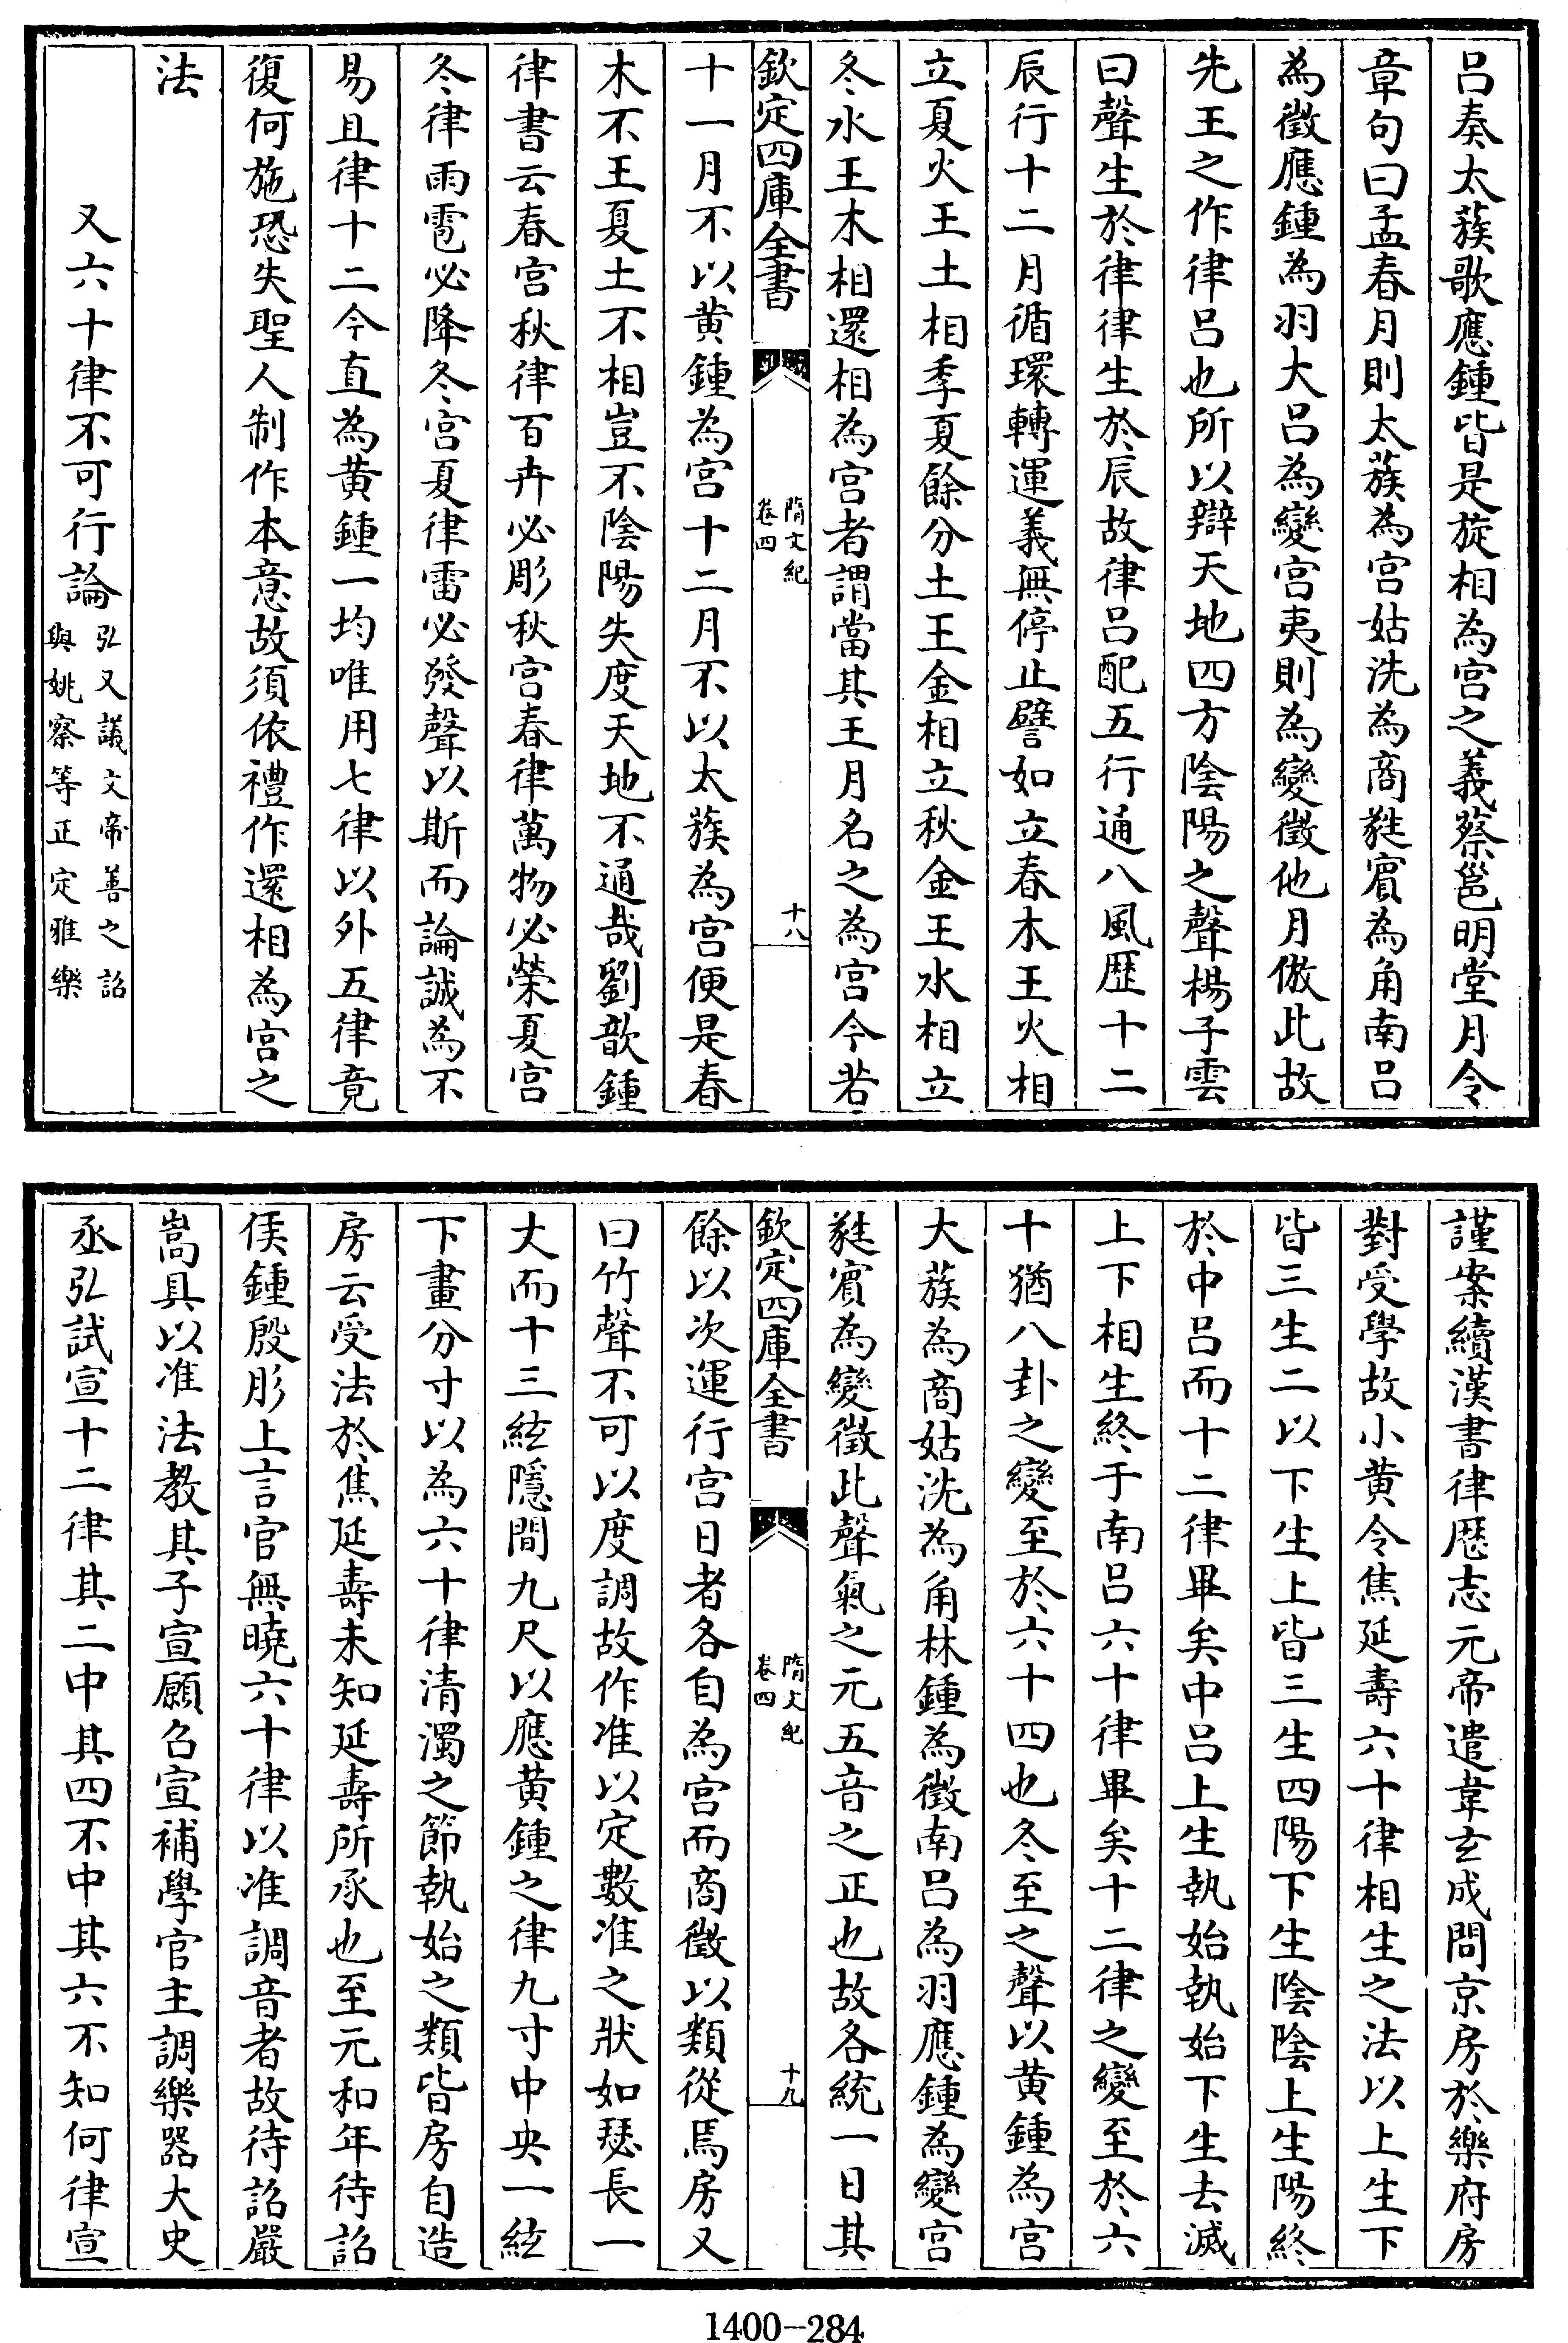 呂奏太蔟歌應鍾皆是旋相為宫之義蔡邕明堂月令
章句曰孟春月則太蔟為宫姑洗為商蕤賓為角南呂
為徵應鍾為羽大呂為變宫夷則為變徵他月倣此故
先王之作律呂也所以辯天地四方陰陽之聲楊子雲
曰聲生於律律生於辰故律呂配五行通八風歴十二
辰行十二月循環轉運義無停止譬如立春木王火相
立夏火王土相季夏餘分土王金相立秋金王水相立
冬水王木相還相為宫者謂當其王月名之為宫今若
欽定四庫全書
隋文紀
卷四
十八
十一月不以黄鍾為宫十二月不以太蔟為宫便是春
木不王夏土不相豈不陰陽失度天地不通哉劉歆鍾
律書云春宫秋律百卉必彫秋宫春律萬物必榮夏宫
冬律雨雹必降冬宫夏律雷必發聲以斯而論誠為不
易且律十二今直為黄鍾一均唯用七律以外五律竟
復何施恐失聖人制作本意故須依禮作還相為宫之
法
又六十律不可行論
弘又議文帝善之詔
與姚察等正定雅樂
謹案續漢書律歴志元帝遣韋玄成問京房於樂府房
對受學故小黄令焦延壽六十律相生之法以上生下
皆三生二以下生上皆三生四陽下生陰陰上生陽終
於中呂而十二律畢矣中呂上生執始執始下生去滅
上下相生終于南呂六十律畢矣十二律之變至於六
十猶八卦之變至於六十四也冬至之聲以黄鍾為宫
大蔟為商姑洗為角林鍾為徵南呂為羽應鍾為變宫
蕤賓為變徵此聲氣之元五音之正也故各統一日其
欽定四庫全書
隋文紀
卷四
十九
餘以次運行宫日者各自為宫而商徵以類從焉房又
曰竹聲不可以度調故作准以定數准之狀如瑟長一
丈而十三絃隱間九尺以應黄鍾之律九寸中央一絃
下畫分寸以為六十律清濁之節執始之類皆房自造
房云受法於焦延壽未知延壽所承也至元和年待詔
侯鍾殷肜上言官無曉六十律以准調音者故待詔嚴
嵩具以准法教其子宣願召宣補學官主調樂器大史
丞弘試宣十二律其二中其四不中其六不知何律宣
1400-284